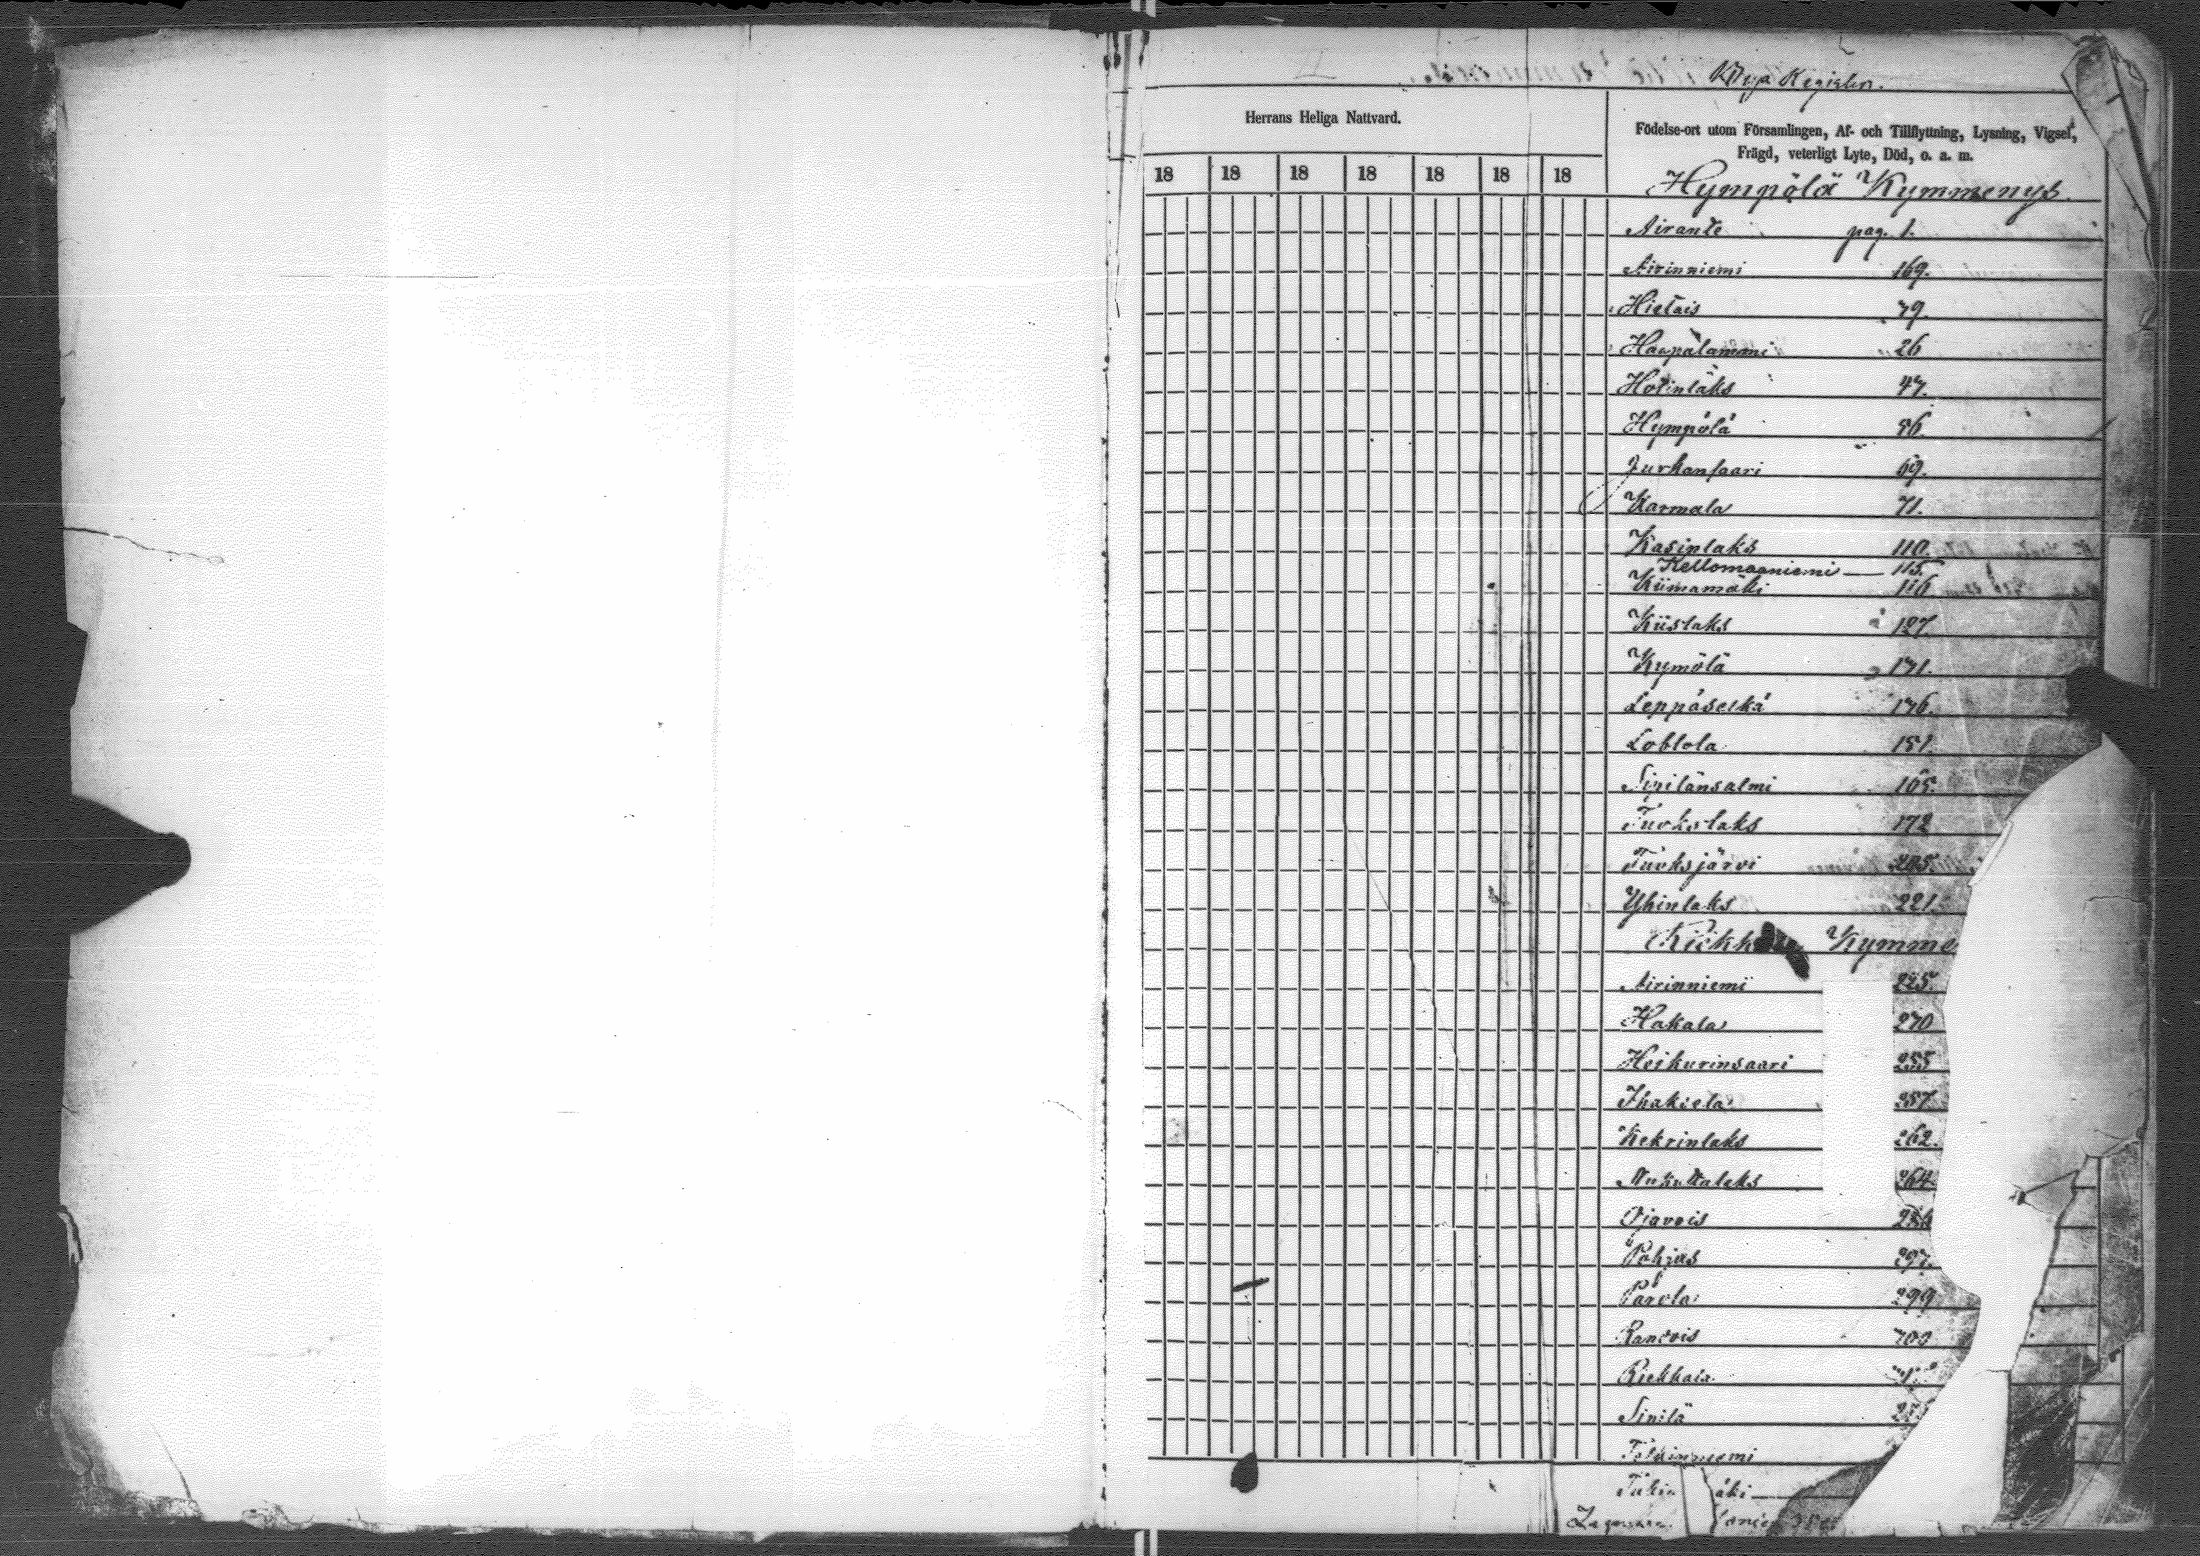 Kylya Register.
Herrans Heliga Nattvard.
Födelse-ort utom Församlingen, Af- och Tillflyttning, Lysning, Vigsel,
Frägd, veterligt Lyte, Död, o. a. m.
18 18 18 18 18 18 18
Hympölä Kymmenys.
Airante pag. 1.
Airinniemi 169.
Hietais 79
Haapalammi 26
Hotinlaks 47.
Hympölä 56.
Jurkansaari 69.
Karmala 71.
Kasinlaks 110.
Kellomaaniemi — 115.
Kiimamäki 116
Kiislaks 127
Kymölä 171.
Leppäselkä 176.
Loblola 151.
Sipilänsalmi 165.
Tuokslaks 172
Tuoksjärvi 205.
Yhinlaks 221.
Kymme
Airinniemi 225.
Hakala 270
Heikurinsaari 255
Ihakiela 257
Kekrinlaks 262.
264.
Ojavois
Pohjas 297.
Parola 299
Ranvois
Riekkala
Sipilä
äki